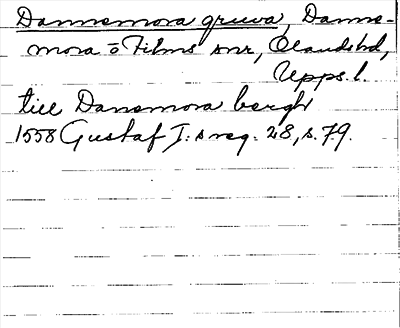 Dannemora gruva, Danne-
mora o Films snr, Olandshd,
Upps. l.
till Danemora bergh
1558 Gustaf I:s reg. 28, s. 79.